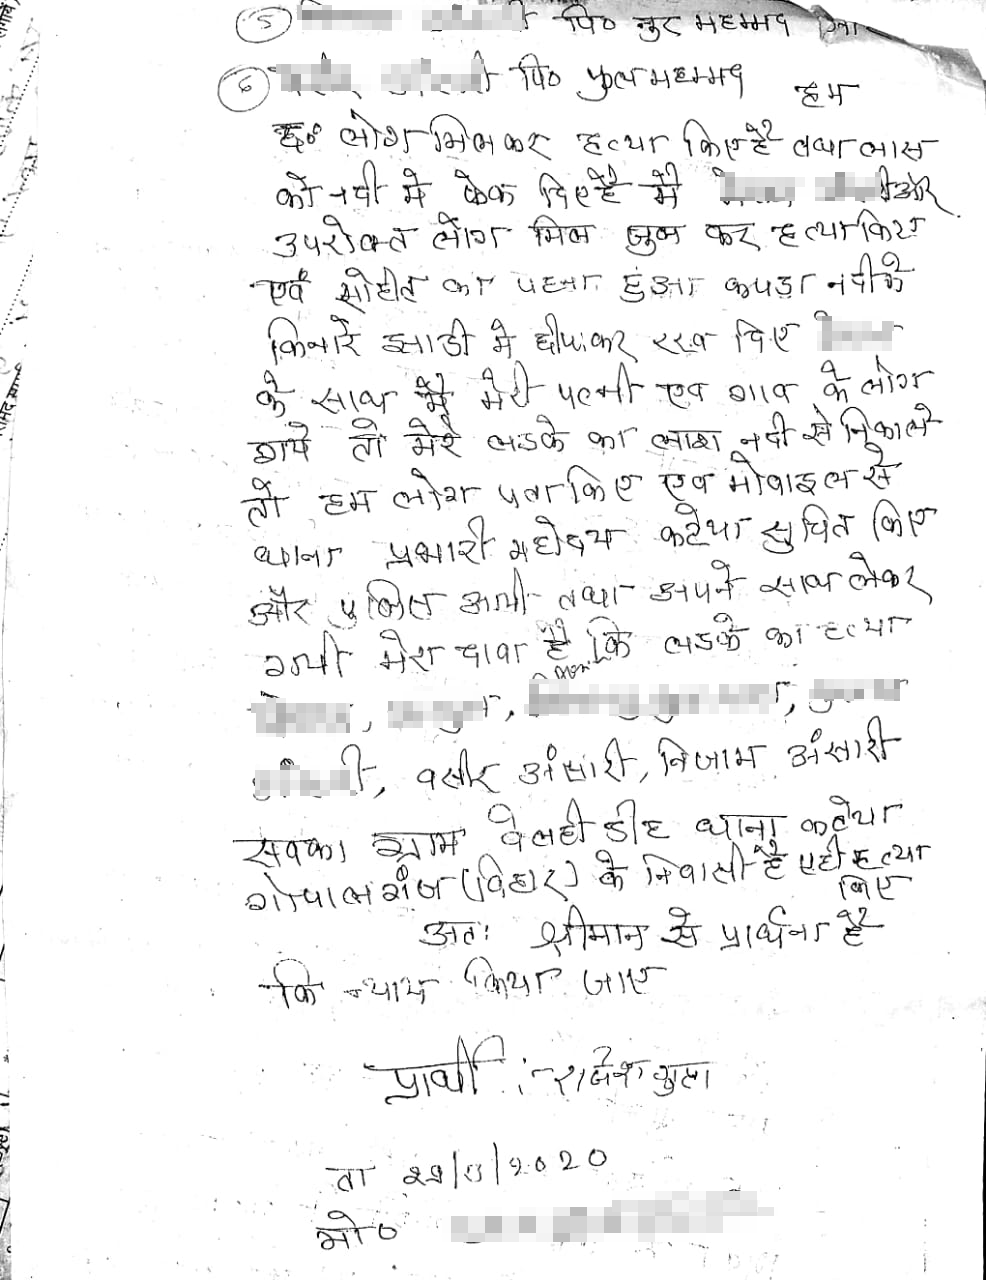 5 पि० नुर महम्मद
6 पि० फुल महम्मद हम
छः लोग मिलकर हत्या किए है तथा लास
को नदी मे फेक दिए है मै और
उपरोक्त लोग मिल जुल कर हत्या किए
एवं रोहीत का पहना हुआ कपड़ा नदी के
किनारे झाडी मे छीपाकर रख दिए
के साथ मै मेरी पत्नी एव गाव के लोग
गये तो मेरे लडके का लाश नदी से निकाले
तो हम लोग पता किए एव मोबाइल से
थाना प्रभारी महोदय कटेया सुचित किए
और पुलिस आयी तथा अपने साथ लेकर
गयी मेरा दावा है कि लडके का हत्या
, , ,
, वसीर अंसारी, निजाम अंसारी
सबका ग्राम वेलही डीह थाना कटेया
गोपालगंज (विहार) के निवासी है एही हत्या
किए
अतः श्रीमान से प्रार्थना है
कि न्याय किया जाए
प्रार्थी :- राजेश गुप्ता
ता /2020
मो०